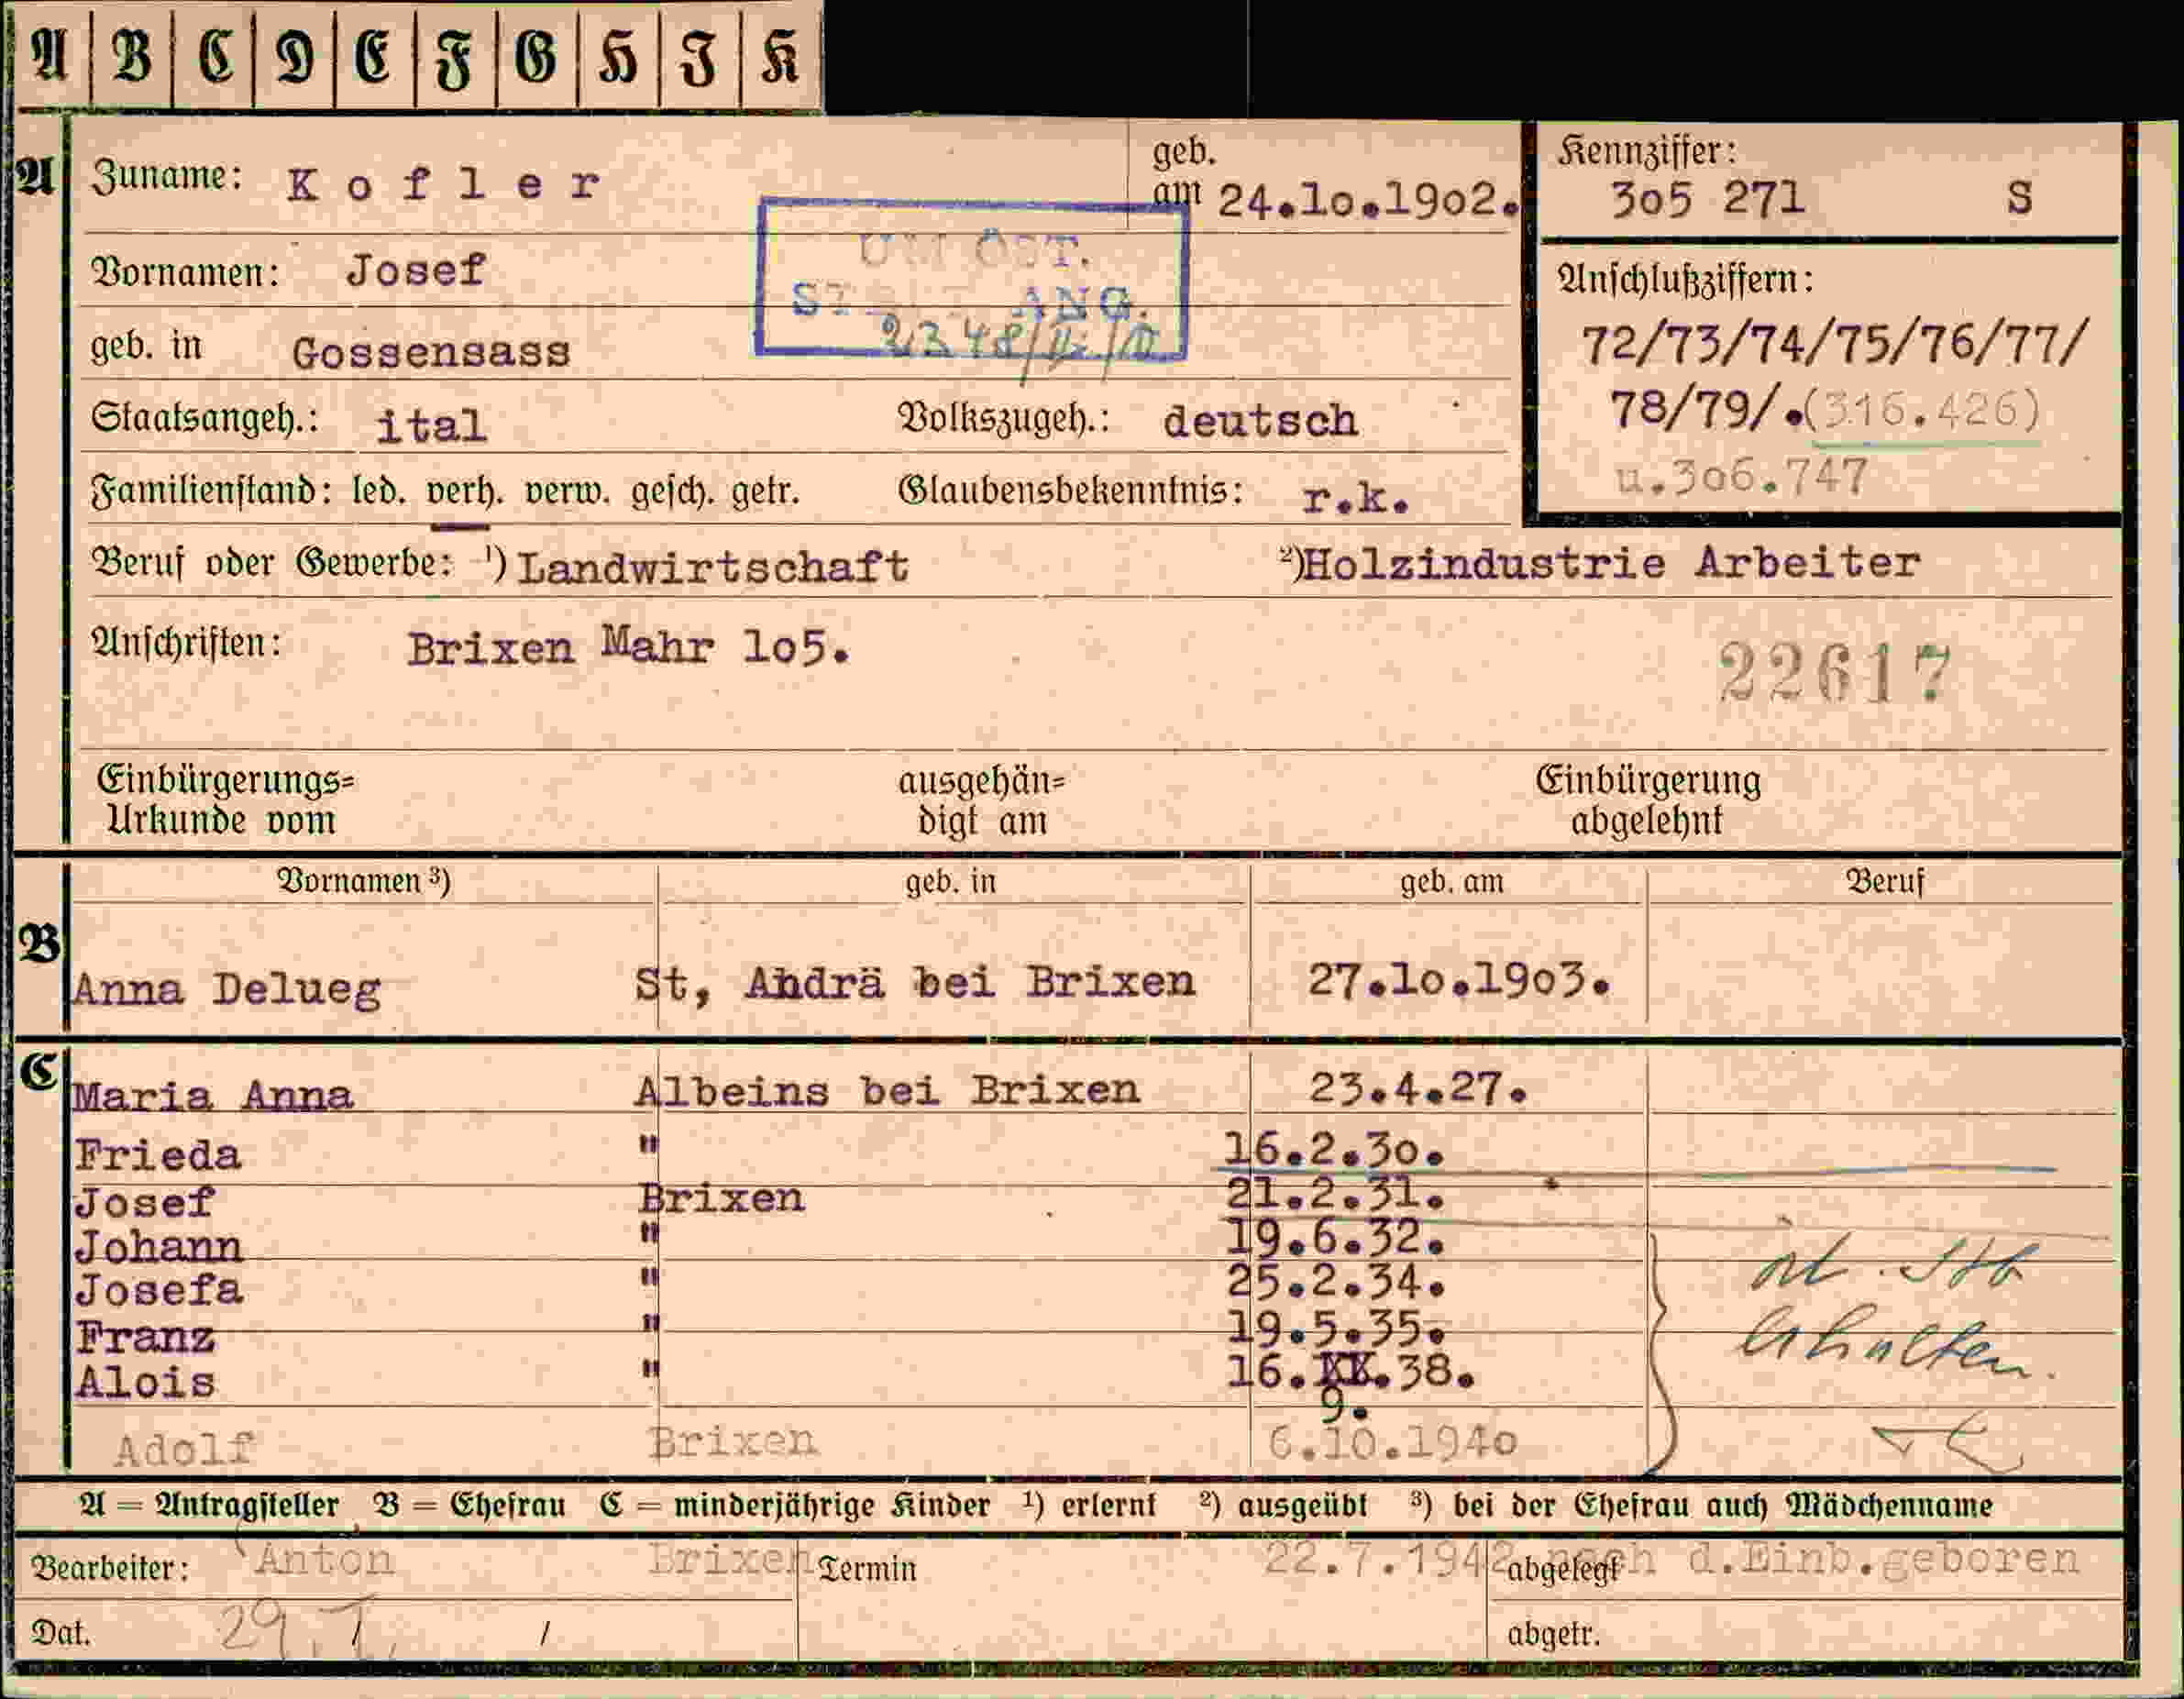 A B C D E F G H J K
A Zuname: Kofler geb. am 24.lo.19o2. Kennziffer: 3o5 271 S
Vornamen: Josef
UM ÖST. ANG.
2348/
geb. in Gossensass
Anschlußziffern:
72/73/74/75/76/77/
78/79/.(316.426)
u.3o6.747
Staatsangeh.: ital Volkszugeh.: deutsch
Familienstand: led. verh. verw. gesch. getr. Glaubensbekenntnis: r.k.
Beruf oder Gewerbe: ¹) Landwirtschaft ²)Holzindustrie Arbeiter
Anschriften: Brixen Mahr lo5.
22617
Einbürgerungs= ausgehän= Einbürgerung
Urkunde vom digt am abgelehnt
Vornamen ³) geb. in geb. am Beruf
B
Anna Delueg St, Andrä bei Brixen 27.lo.19o3.
C
Maria Anna Albeins bei Brixen 23.4.27.
Frieda " 16.2.3o.
Josef Brixen 21.2.31.
Johann " 19.6.32.
Josefa " 25.2.34.
Franz " 19.5.35.
Alois " 16.XX.38.
9.
Adolf Brixen 6.10.194o
erhalten.
A = Antragsteller B = Ehefrau C = minderjährige Kinder ¹) erlernt ²) ausgeübt ³) bei der Ehefrau auch Mädchenname
Bearbeiter: Anton Brixen Termin 22.7.1942 nach d.Einb.geboren
abgelegt
Dat. 29. / abgetr.